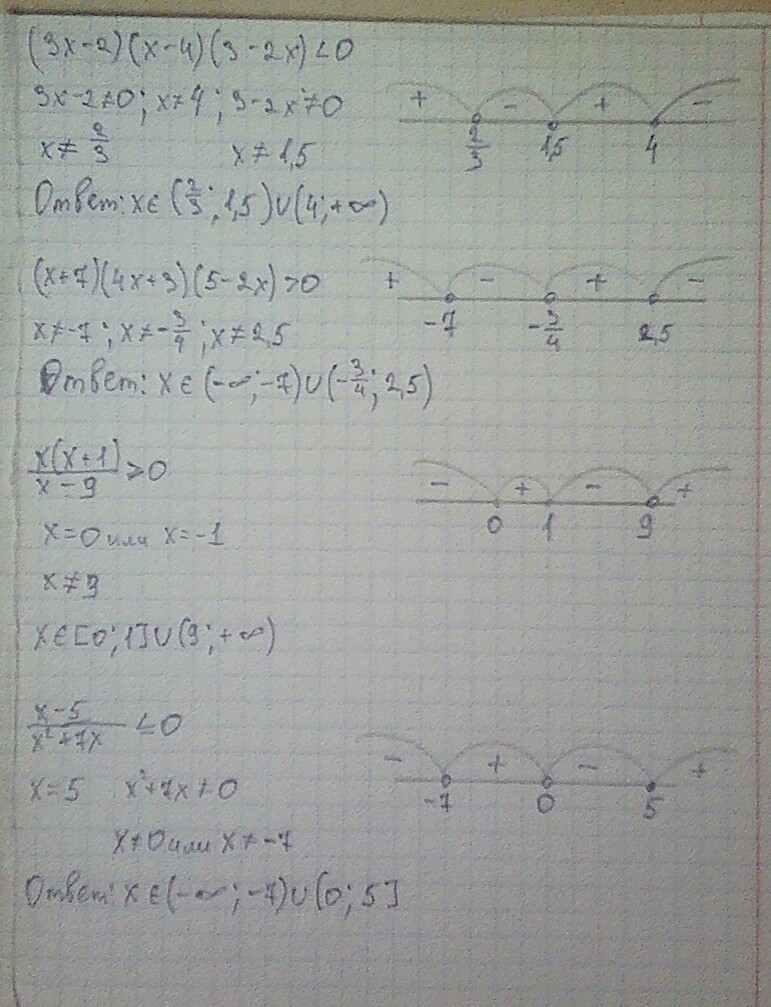 (3x-2)(x-4)(3-2x)<0
3x-2≠0; x≠4; 3-2x≠0
x≠2/3 x≠1,5
+ - + -
2/3 1,5 4
Ответ: x∈(2/3; 1,5)∪(4; +∞)
(x+7)(4x+3)(5-2x)>0
x≠-7; x≠-3/4; x≠2,5
+ - + -
-7 -3/4 2,5
Ответ: x∈(-∞; -7)∪(-3/4; 2,5)
x(x+1)/x-9 ≥0
x=0 или x=-1
x≠9
- + - +
0 1 9
x∈[0; 1]∪(9; +∞)
x-5/x²+7x ≤0
x=5 x²+7x≠0
x≠0 или x≠-7
- + - +
-7 0 5
Ответ: x∈(-∞; -7)∪(0; 5]